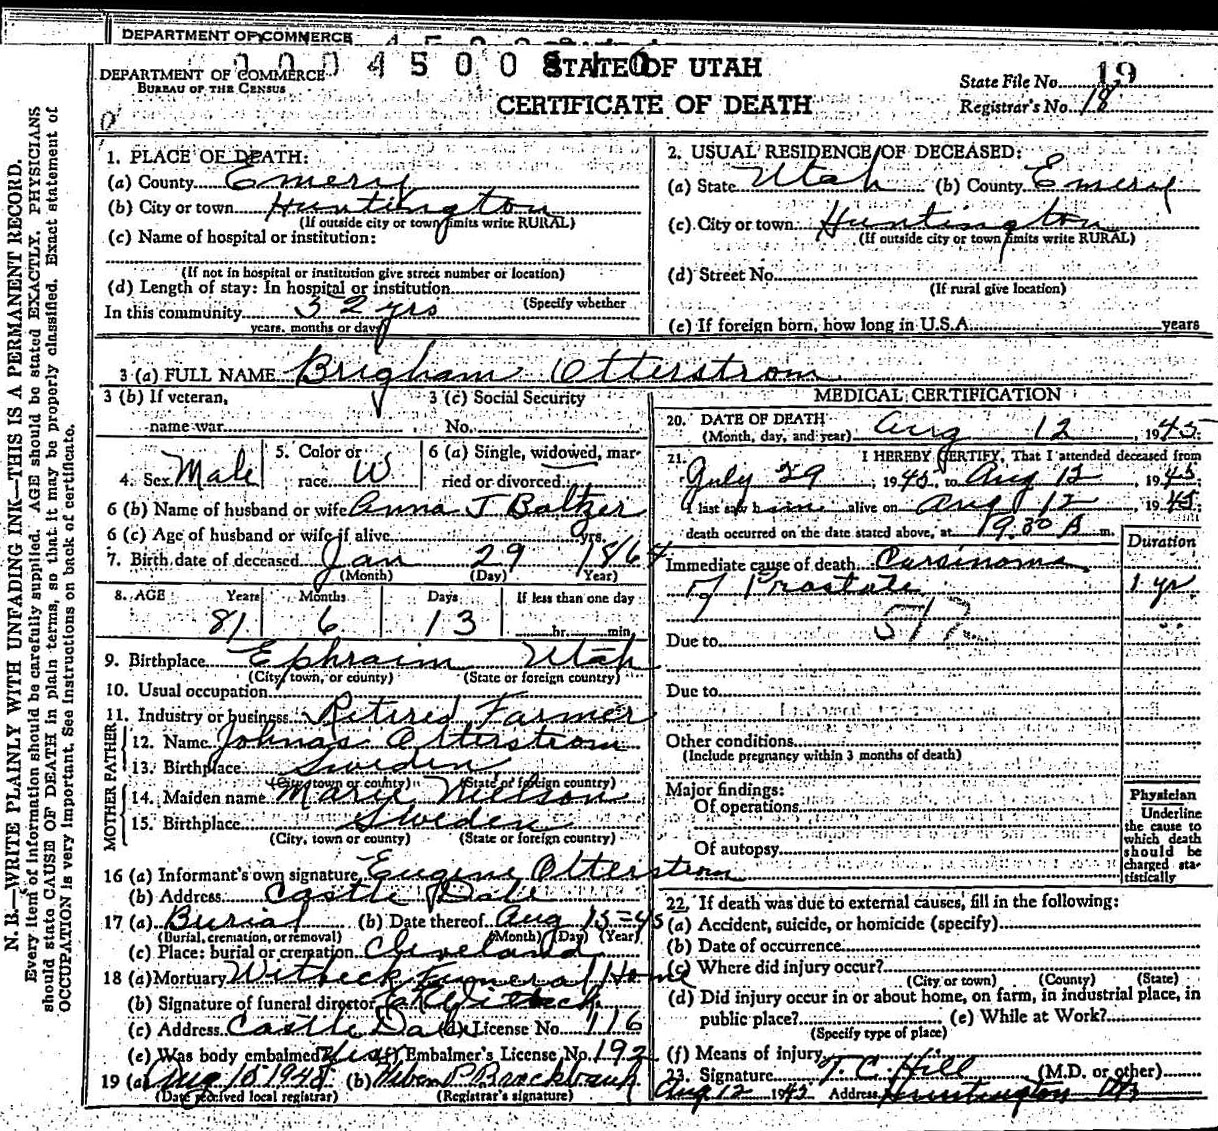 DEPARTMENT OF COMMERCE
DEPARTMENT OF COMMERCE
BUREAU OF THE CENSUS
STATE OF UTAH
CERTIFICATE OF DEATH
State File No. 19
Registrar's No. 18
N. B.—WRITE PLAINLY WITH UNFADING INK—THIS IS A PERMANENT RECORD.
Every item of information should be carefully supplied. AGE should be stated EXACTLY. PHYSICIANS
should state CAUSE OF DEATH in plain terms, so that it may be properly classified. Exact statement of
OCCUPATION is very important. See instructions on back of certificate.
1. PLACE OF DEATH:
(a) County Emery
(b) City or town Huntington
(If outside city or town limits write RURAL)
(c) Name of hospital or institution:
(If not in hospital or institution give street number or location)
(d) Length of stay: In hospital or institution
(Specify whether
In this community 52 yrs
years, months or days)
2. USUAL RESIDENCE OF DECEASED:
(a) State Utah (b) County Emery
(c) City or town Huntington
(If outside city or town limits write RURAL)
(d) Street No.
(If rural give location)
(e) If foreign born, how long in U.S.A. years
3 (a) FULL NAME Brigham Otterstrom
3 (b) If veteran, name war
3 (c) Social Security No.
4. Sex Male
5. Color or race W
6 (a) Single, widowed, married or divorced
6 (b) Name of husband or wife Anna J Baltzer
6 (c) Age of husband or wife if alive yrs.
7. Birth date of deceased Jan 29 1864
(Month) (Day) (Year)
8. AGE Years Months Days If less than one day
81 6 13 hr. min.
9. Birthplace Ephraim Utah
(City, town, or county) (State or foreign country)
10. Usual occupation
11. Industry or business Retired Farmer
FATHER
12. Name Johnas Otterstrom
13. Birthplace Sweden
(City, town or county) (State or foreign country)
MOTHER
14. Maiden name Marie Nielson
15. Birthplace Sweden
(City, town or county) (State or foreign country)
16 (a) Informant's own signature Eugene Otterstrom
(b) Address Castle Dale
17 (a) Burial (b) Date thereof Aug 15-45
(Burial, cremation, or removal) (Month) (Day) (Year)
(c) Place: burial or cremation Cleveland
18 (a) Mortuary Witbeck Funeral Home
(b) Signature of funeral director Witbeck
(c) Address Castle Dale (d) License No. 116
(e) Was body embalmed Yes (f) Embalmer's License No. 192
19 (a) Aug 15 1945 (b) P Brockbank
(Date received local registrar) (Registrar's signature)
MEDICAL CERTIFICATION
20. DATE OF DEATH
(Month, day, and year) Aug 12, 1945
21. I HEREBY CERTIFY, That I attended deceased from
July 29, 1945, to Aug 12, 1945
I last saw him alive on Aug 12, 1945
death occurred on the date stated above, at 9.30 A m.
Duration
Immediate cause of death Carsinoma
of Prostate 1 yr.
517
Due to
Due to
Other conditions
(Include pregnancy within 3 months of death)
Major findings:
Of operations
Of autopsy
Physician
Underline
the cause to
which death
should be
charged sta-
tistically
22. If death was due to external causes, fill in the following:
(a) Accident, suicide, or homicide (specify)
(b) Date of occurrence
(c) Where did injury occur?
(City or town) (County) (State)
(d) Did injury occur in or about home, on farm, in industrial place, in
public place? (e) While at Work?
(Specify type of place)
(f) Means of injury
23. Signature T. C. Hill (M.D. or other)
Aug 12 1945 Address Huntington Ut